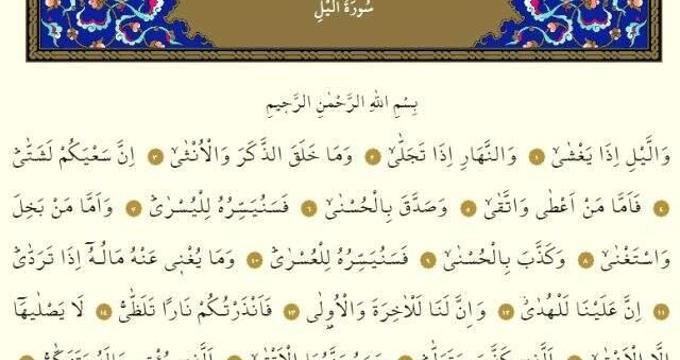 سُورَةُ الَّيْلِ
بِسْمِ اللهِ الرَّحْمٰنِ الرَّحِيمِ
وَالَّيْلِ اِذَا يَغْشٰىۙ ١ وَالنَّهَارِ اِذَا تَجَلّٰىۙ ٢ وَمَا خَلَقَ الذَّكَرَ وَالْاُنْثٰىۙ ٣ اِنَّ سَعْيَكُمْ لَشَتّٰىۜ
٤ فَاَمَّا مَنْ اَعْطٰى وَاتَّقٰىۙ ٥ وَصَدَّقَ بِالْحُسْنٰىۙ ٦ فَسَنُيَسِّرُهُ لِلْيُسْرٰىۜ ٧ وَاَمَّا مَنْ بَخِلَ
وَاسْتَغْنٰىۙ ٨ وَكَذَّبَ بِالْحُسْنٰىۙ ٩ فَسَنُيَسِّرُهُ لِلْعُسْرٰىۜ ١٠ وَمَا يُغْنٖى عَنْهُ مَالُهُٓ اِذَا تَرَدّٰىۜ
١١ اِنَّ عَلَيْنَا لَلْهُدٰىۘ ١٢ وَاِنَّ لَنَا لَلْاٰخِرَةَ وَالْاُو۫لٰى ١٣ فَاَنْذَرْتُكُمْ نَارًا تَلَظّٰىۚ ١٤ لَا يَصْلٰيهَٓا